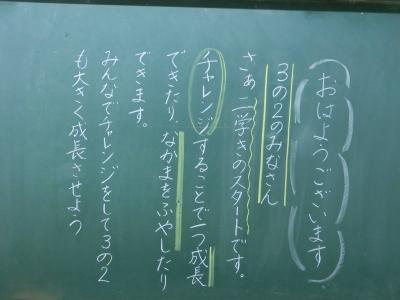 おはようございます
3の2のみなさん
さぁ 二学きのスタートです。
チャレンジすることで一つ成長
できたり、なかまをふやしたり
できます。
みんなでチャレンジをして3の2
も大きく成長させよう